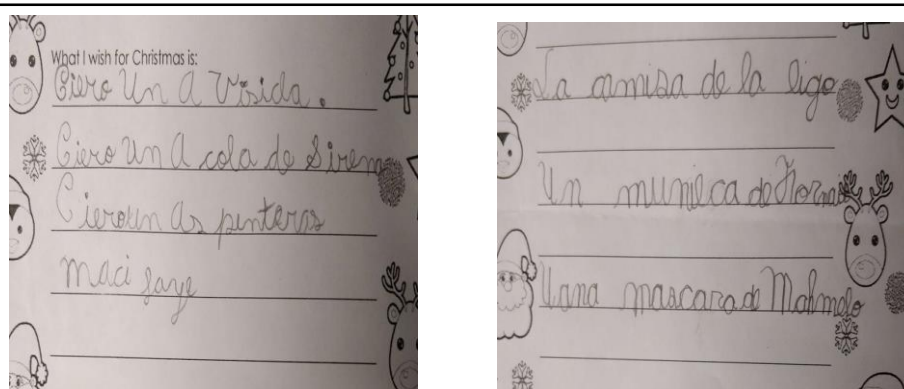 What I wish for Christmas is:
Ciero Un A Visida.
Ciero Un A cola de Sirem
Cieroun As pinteras
maci gaye
La camisa de la liga
Un muneca de Fornai
Uana mascara de Mahmelo